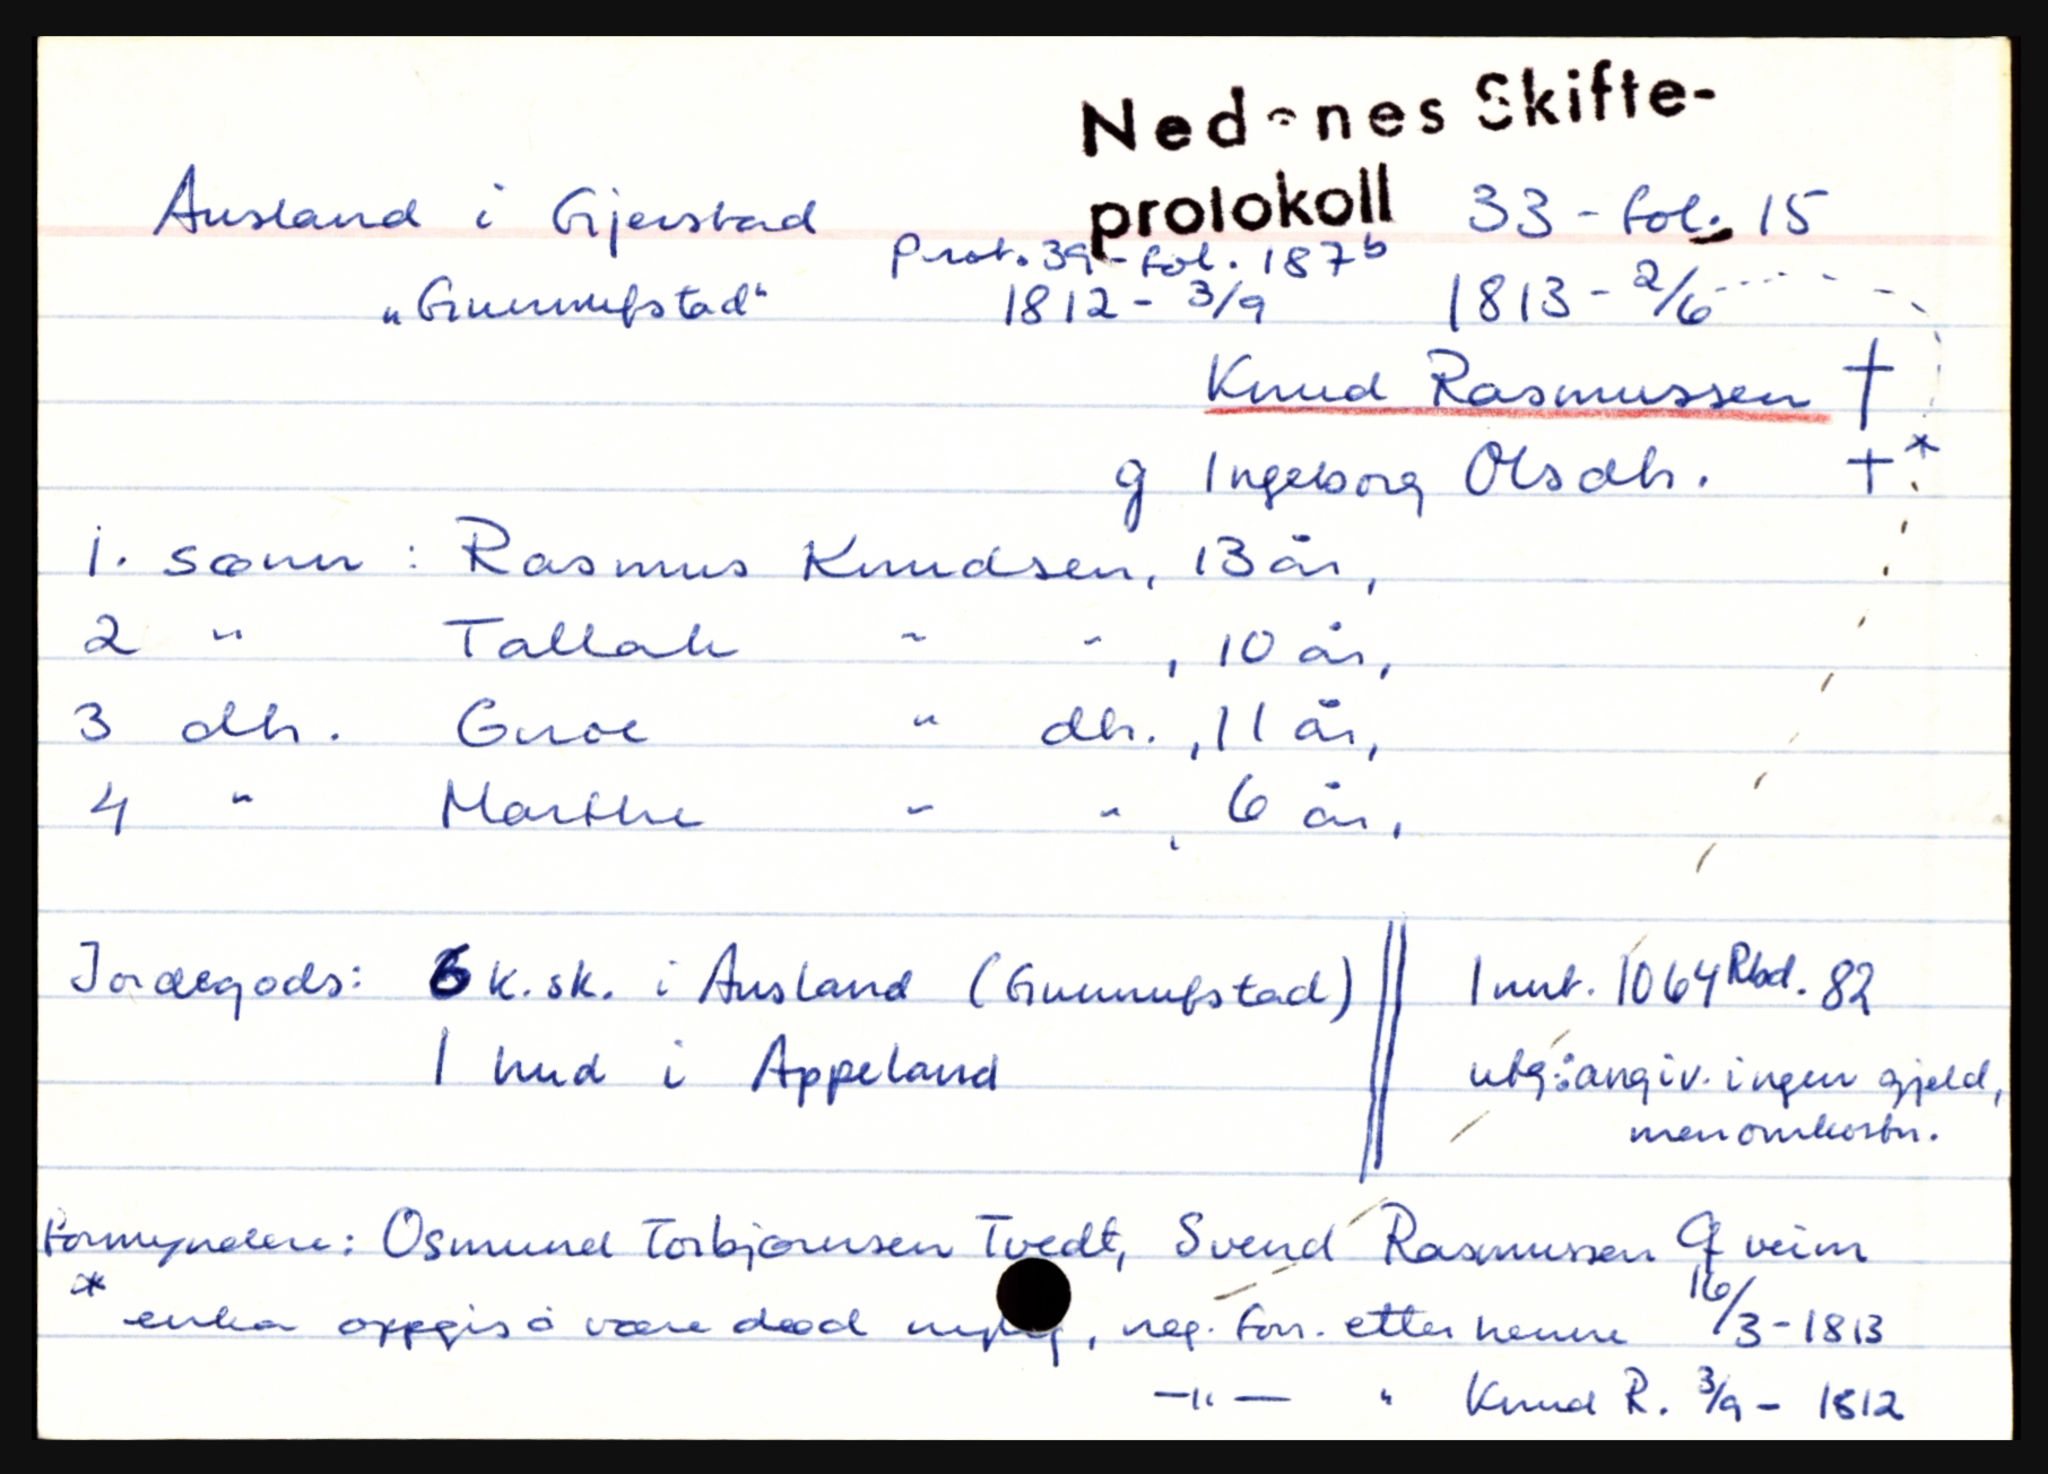 Nedenes Skifte-
protokoll 33 - fol. 15
Ausland i Gjerstad
Prot. 39 - fol. 187b
"Gunnufstad" 1812 - 3/9 1813 - 2/6
Knud Rasmussen †
g Ingeborg Olsdtr. + *
1. sønn : Rasmus Knudsen, 13 år,
2 " Tallak " " , 10 år,
3 dtr. Guroe " dtr. , 11 år,
4 " Marthe " " , 6 år.
Jordegods: 6 k.sk. i Ausland (Gunnufstad) || Innt. 1064 Rbd. 82
1 hud i Appeland utg: angiv. ingen gjeld,
men omkostn.
Formyndere: Osmund Torbjørnsen Tvedt, Svend Rasmussen Qveim
* enka oppgis å være død nylig, reg. forr. etter henne 16/3 - 1813
—"— " Knud R. 3/9 - 1812